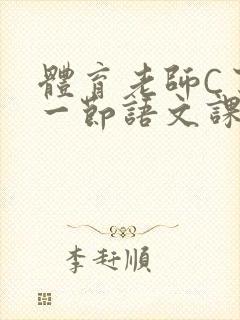 體育老師C
一節語文課
李 順